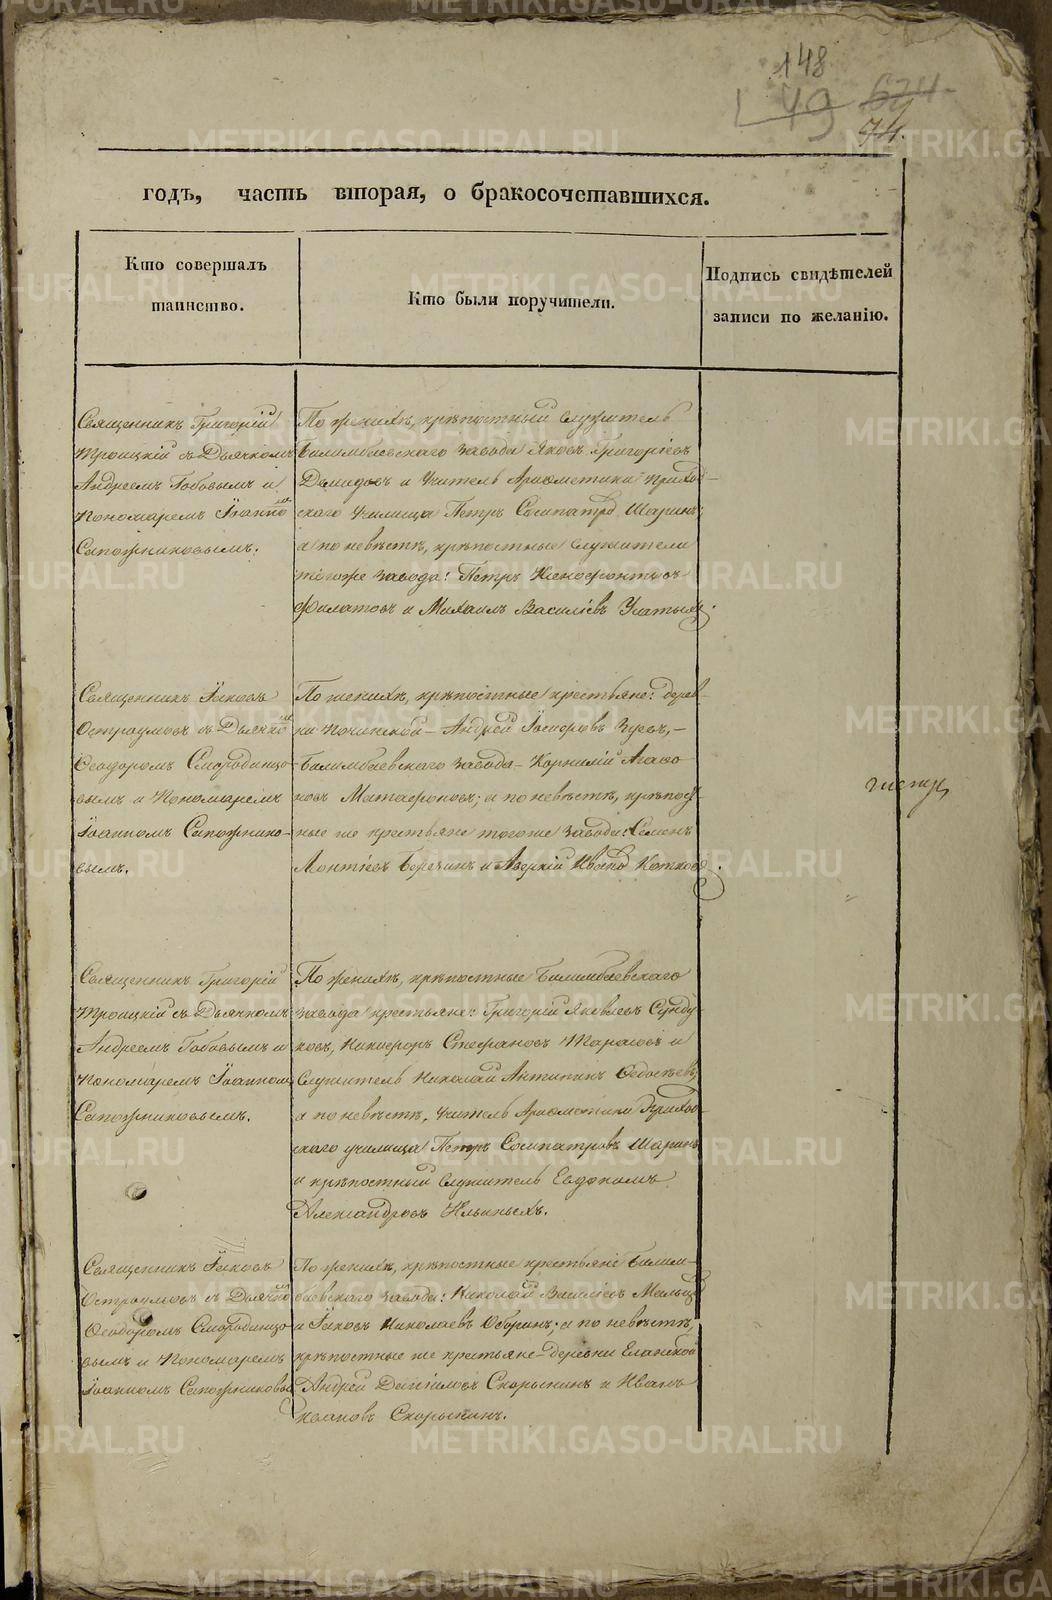 148
49 674
74.
годъ, часть вторая, о бракосочетавшихся.
Кто совершалъ
таинство.
Кто были поручители.
Подпись свидѣтелей
записи по желанію.
Священникъ Григорій
Троицкій съ Дьячкомъ
Андреемъ Бобовымъ и
Пономаремъ Іоанномъ
Сапожниковымъ.
По женихѣ, крѣпостный служитель
Билимбаевскаго завода Яковъ Григорьевъ
Демидовъ и Учитель Арифметики Приход-
скаго Училища Петръ Сосипатровъ Шаринъ;
а по невѣстѣ, крѣпостные служители
тогоже завода: Петръ Ксенофонтовъ
Филатовъ и Михаилъ Василіевъ
Священникъ Іаковъ
Остроумовъ съ Дьячкомъ
Ѳеодоромъ Смородинцо-
вымъ и Пономаремъ
Іоанномъ Сапожнико-
вымъ.
По женихѣ, крѣпостные крестьяне: дерев-
ни Коминской - Андрей
Билимбаевскаго завода - Корнилій Агаѳо
новъ Матафоновъ; а по невѣстѣ, крѣпост-
ные же крестьяне тогоже завода: Семенъ
Леонтіевъ Березинъ и Аверкій Ивановъ Котковъ.
Священникъ Григорій
Троицкій съ Дьячкомъ
Андреемъ Бобовымъ и
Пономаремъ Іоанномъ
Сапожниковымъ.
По женихѣ, крѣпостные Билимбаевскаго
завода крестьяне: Григорій Яковлевъ Сунду-
ковъ, Никифоръ Стефановъ Тарасовъ и
Служитель Николай Антипинъ Ѳедосѣевъ,
а по невѣстѣ, Учитель Арифметики Приход-
скаго училища Петръ Сосипатровъ Шаринъ
и крѣпостный служитель Евдокимъ
Александровъ Ильиныхъ.
Священникъ Іаковъ
Остроумовъ съ Дьячкомъ
Ѳеодоромъ Смородинцо-
вымъ и Пономаремъ
Іоанномъ Сапожниковы
По женихѣ, крѣпостные крестьяне Билим-
баевскаго завода: Николай Василіевъ
и Іаковъ Николаевъ Оборинъ; а по невѣстѣ,
крѣпостные же крестьяне деревни Еланской
Андрей Даніиловъ Скорынинъ и Иванъ
Ивановъ Скорынинъ.
METRIKI.GASO-URAL.RU